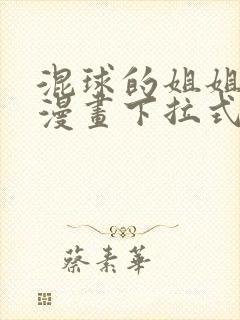 混球的姐姐
漫畫下拉式
蔡素華